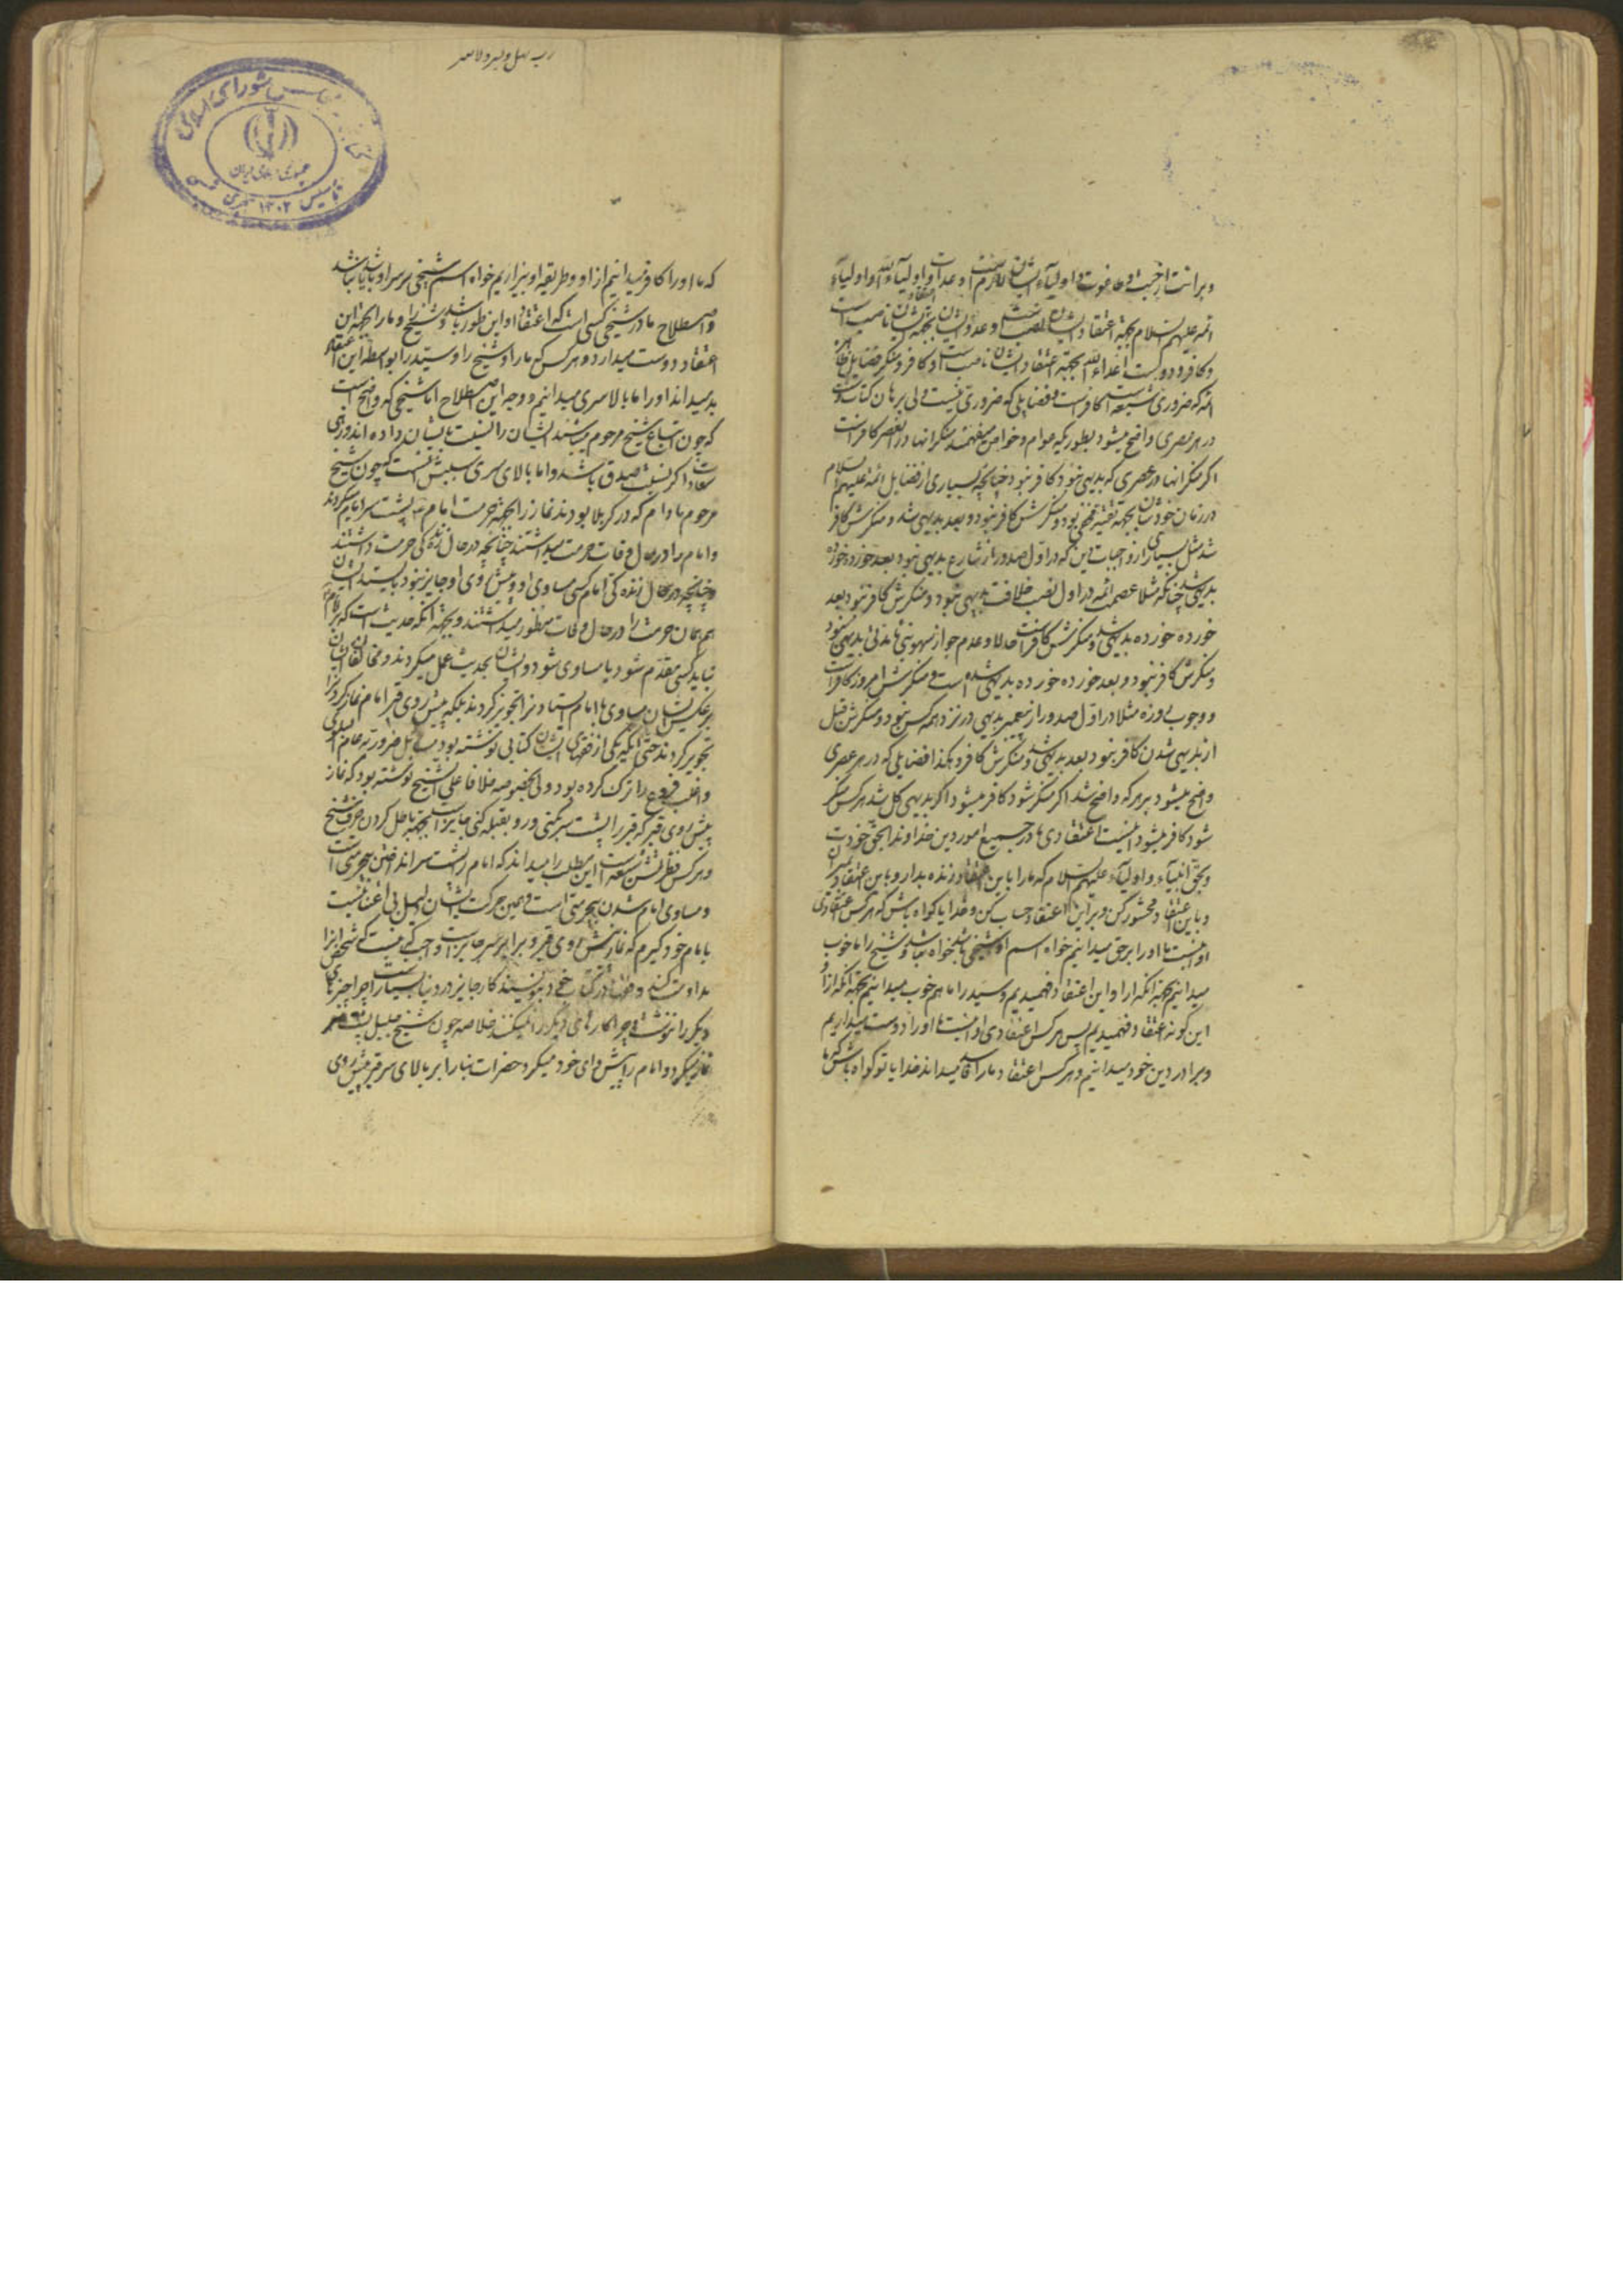 و برائت از جبت و طاغوت و اولیاء ایشان لازم است و عداوت اولیاء الله و اولیاء
ائمه علیهم السلام بجهة اعتقاد ایشان نصب است و عدو ایشان بجهة اعتقاد ایشان ناصب است
و کافر و دوست اعداء الله بجهة اعتقاد ایشان ناصب است و کافر و منکر فضایل
ائمه که ضروری شیعه است کافر است و فضایلی که ضروری نیست ولی برهان کتاب و سنت
در هر عصری واضح میشود بطوریکه عوام و خواص میفهمند منکر آنها در آن عصر کافر است
اگر منکر آنها در عصری که بدیهی نبود کافر نبود چنانچه بسیاری از فضایل ائمه علیهم السلام
در زمان خودشان بجهة تقیه مخفی بود و منکرش کافر نبود و بعد بدیهی شد و منکرش کافر
شد مثل بسیاری از واجبات دین که در اول صدور از شارع بدیهی نبود بعد خورده خورده
بدیهی شد چنانکه مثلا عصمت ائمه در اول نصب خلافت بدیهی نبود و منکرش کافر نبود بعد
خورده خورده بدیهی شد و منکرش کافر است حالا و عدم جواز سهو نبی ها مدتی بدیهی نبود
و منکرش کافر نبود و بعد خورده خورده بدیهی شده است و منکرش امروز کافر است
و وجوب روزه مثلا در اول صدور از پیغمبر بدیهی در نزد همه کس نبود و منکرش قبل
از بدیهی شدن کافر نبود بعد بدیهی شد و منکرش کافر و هکذا فضایلی که در هر عصری
واضح میشود بر هر که واضح شد اگر منکر شود کافر میشود اگر بدیهی کل شد هر کس منکر
شود کافر میشود اینست اعتقادی ما در جمیع امور دین خداوندا بحق خودت
و بحق انبیاء و اولیاء علیهم السلام که ما را باین اعتقاد زنده بدار و باین اعتقاد بمیران
و باین اعتقاد محشور کن و بر این اعتقاد حساب کن و خدایا گواه باش که هر کس اعتقادی
او اینست ما او را بر حق میدانیم خواه اسم او شیخی باشد خواه نباشد و شیخ را ما خوب
میدانیم بجهة آنکه از او این اعتقاد فهمیدیم و سید را ما هم خوب میدانیم بجهة آنکه از او
این گونه اعتقاد فهمیدیم پس هر کس اعتقادی او اینست ما او را دوست میداریم
و برادر دین خود میدانیم و هر کس اعتقاد ما را میداند خدایا تو گواه باش که
کتابخانه مجلس شورای اسلامی
جمهوری اسلامی ایران
تأسیس ۱۳۰۲ هجری شمسی
که ما او را کافر میدانیم از او و طریقه او بیزاریم خواه اسم شیخی بر سر او باشد یا نباشد
و اصطلاح ما در شیخی کسی است که اعتقاد او این طور باشد و شیخ را و ما را بجهة این
اعتقاد دوست میدارد و هر کس که ما را و شیخ را و سید را بواسطه این اعتقاد
بد میداند او را ما بالاسری میدانیم و وجه این اصطلاح اما شیخی که واضح است
که چون اتباع شیخ مرحوم میباشند ایشان را نسبت بایشان داده اند و زهی
سعادت اگر نسبت صدق باشد و اما بالای سری سببش اینست که چون شیخ
مرحوم مادام که در کربلا بودند نماز را بجهة حرمت امام پشت سر امام میکردند
و امام را در حال وفات حرمت میداشتند چنانچه در حال زندگی حرمت داشتند
و چنانچه در حال زندگی امام کسی مساوی او و پیش روی او جایز نبود بایستد ایشان
هم همان حرمت را در حال وفات منظور میداشتند و بجهة آنکه حدیث است که بر امام
نباید کسی مقدم شود یا مساوی شود و ایشان بحدیث عمل میکردند و مخالفان ایشان
بر عکس ایشان مساوی با امام ایستادن را تجویز کردند بلکه پیش روی قبر امام نماز کردن را
تجویز کردند حتی آنکه یکی از فقهای ایشان کتابی نوشته بود مسائل ضروریه
و اغلب فروع را ترک کرده بود ولی بخصوصه خلافا علی الشیخ نوشته بود که نماز
پیش روی قبر که قبر را پشت سر کنی و رو بقبله کنی جایز است بجهة باطل کردن حرف شیخ
و هر کس فطرتش شیعه است این مطلب را میداند که امام را پشت سر انداختن بیحرمتی است
و مساوی امام شدن بیحرمتی است و همین حرکت ایشان دلیل بی اعتنائیست
با امام خود گیرم که نماز پیش روی قبر و برابر سر جایز است واجب که نیست که شخص آنرا
مداومت کند و در کتاب خود بنویسند کار جایز در دنیا بسیار است چرا چیزهای
دیگر را ننوشت و چرا کارهای دیگر را نمیکنند خلاصه چون شیخ جلیل پشت سر
نماز میکرد و امام را پیشوای خود میکرد حضرات بنا را بر بالای سر قبر و پیش روی